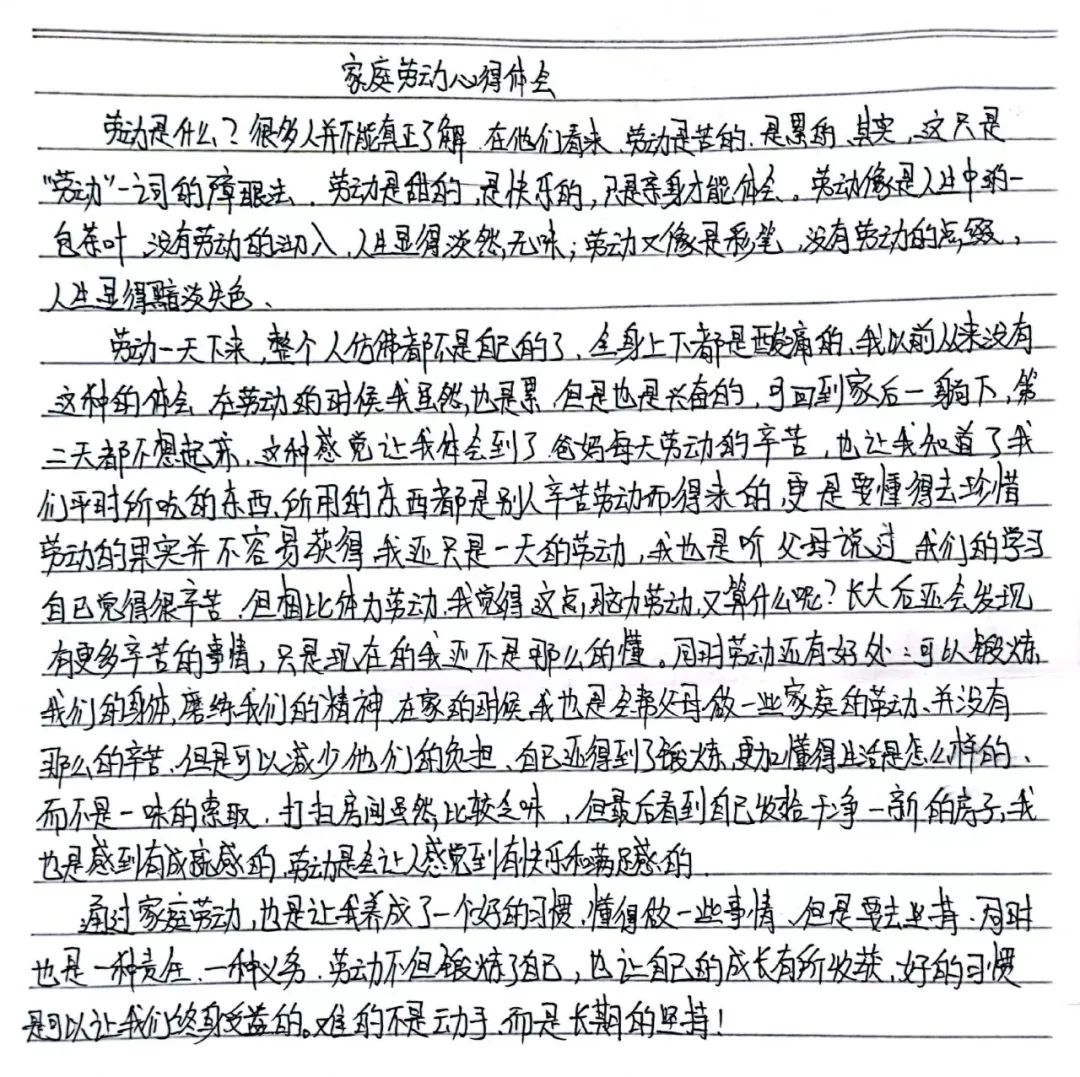 家庭劳动心得体会
劳动是什么？很多人并不能真正了解.在他们看来.劳动是苦的.是累的.其实,这只是
“劳动”一词的障眼法.劳动是甜的,是快乐的,只是亲身才能体会。劳动像是人生中的一
包茶叶,没有劳动的沏入,人生显得淡然无味；劳动又像是彩笔,没有劳动的点缀,
人生显得黯淡失色、
劳动一天下来,整个人仿佛都不是自己的了、全身上下都是酸痛的、我以前从来没有
这种的体会.在劳动的时候我虽然也是累.但是也是兴奋的,可回到家后一躺下,第
二天都不想起床,这种感觉让我体会到了爸妈每天劳动的辛苦,也让我知道了我
们平时所吃的东西、所用的东西都是别人辛苦劳动而得来的,更是要懂得去珍惜
劳动的果实并不容易获得,我还只是一天的劳动,我也是听父母说过.我们的学习
自己觉得很辛苦.但相比体力劳动.我觉得这点脑力劳动又算什么呢？长大后还会发现
有更多辛苦的事情,只是现在的我还不是那么的懂。同时劳动还有好处:可以锻炼
我们的身体,磨练我们的精神.在家的时候,我也是会帮父母做一些家庭的劳动、并没有
那么的辛苦、但是可以减少他们的负担、自己还得到了锻炼,更加懂得生活是怎么样的、
而不是一味的索取.打扫房间虽然比较乏味,但最后看到自己收拾干净一新的房子,我
也是感到有成就感的,劳动是会让人感觉到有快乐和满足感的.
通过家庭劳动,也是让我养成了一个好的习惯.懂得做一些事情、但是要去坚持.同时
也是一种责任、一种义务.劳动不但锻炼了自己,也让自己的成长有所收获.好的习惯
是可以让我们终身受益的。难的不是动手.而是长期的坚持！